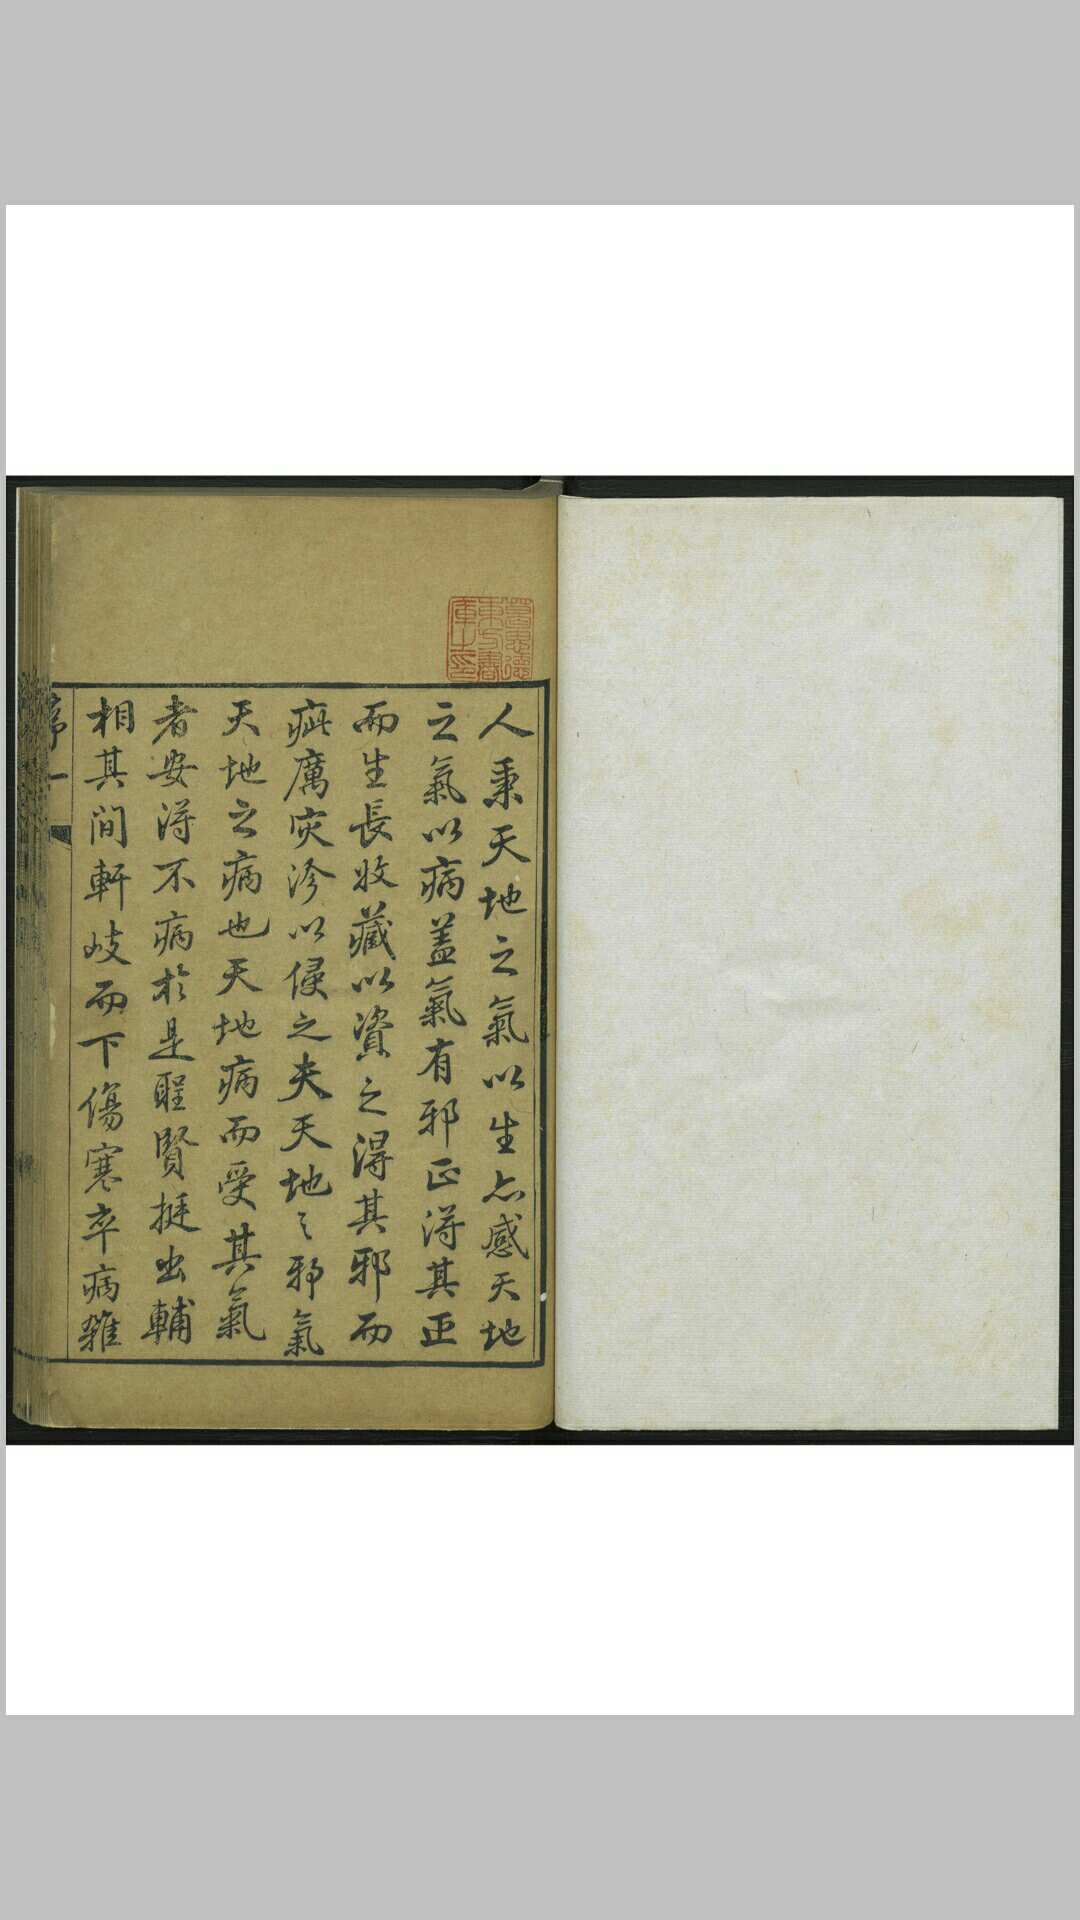 葛思德
東方書
庫之印
人秉天地之氣以生亦感天地
之氣以病蓋氣有邪正得其正
而生長收藏以資之得其邪而
疵厲灾沴以侵之夫天地之邪氣
天地之病也天地病而受其氣
者安得不病於是聖賢挺出輔
相其間軒岐而下傷寒卒病雜
序一